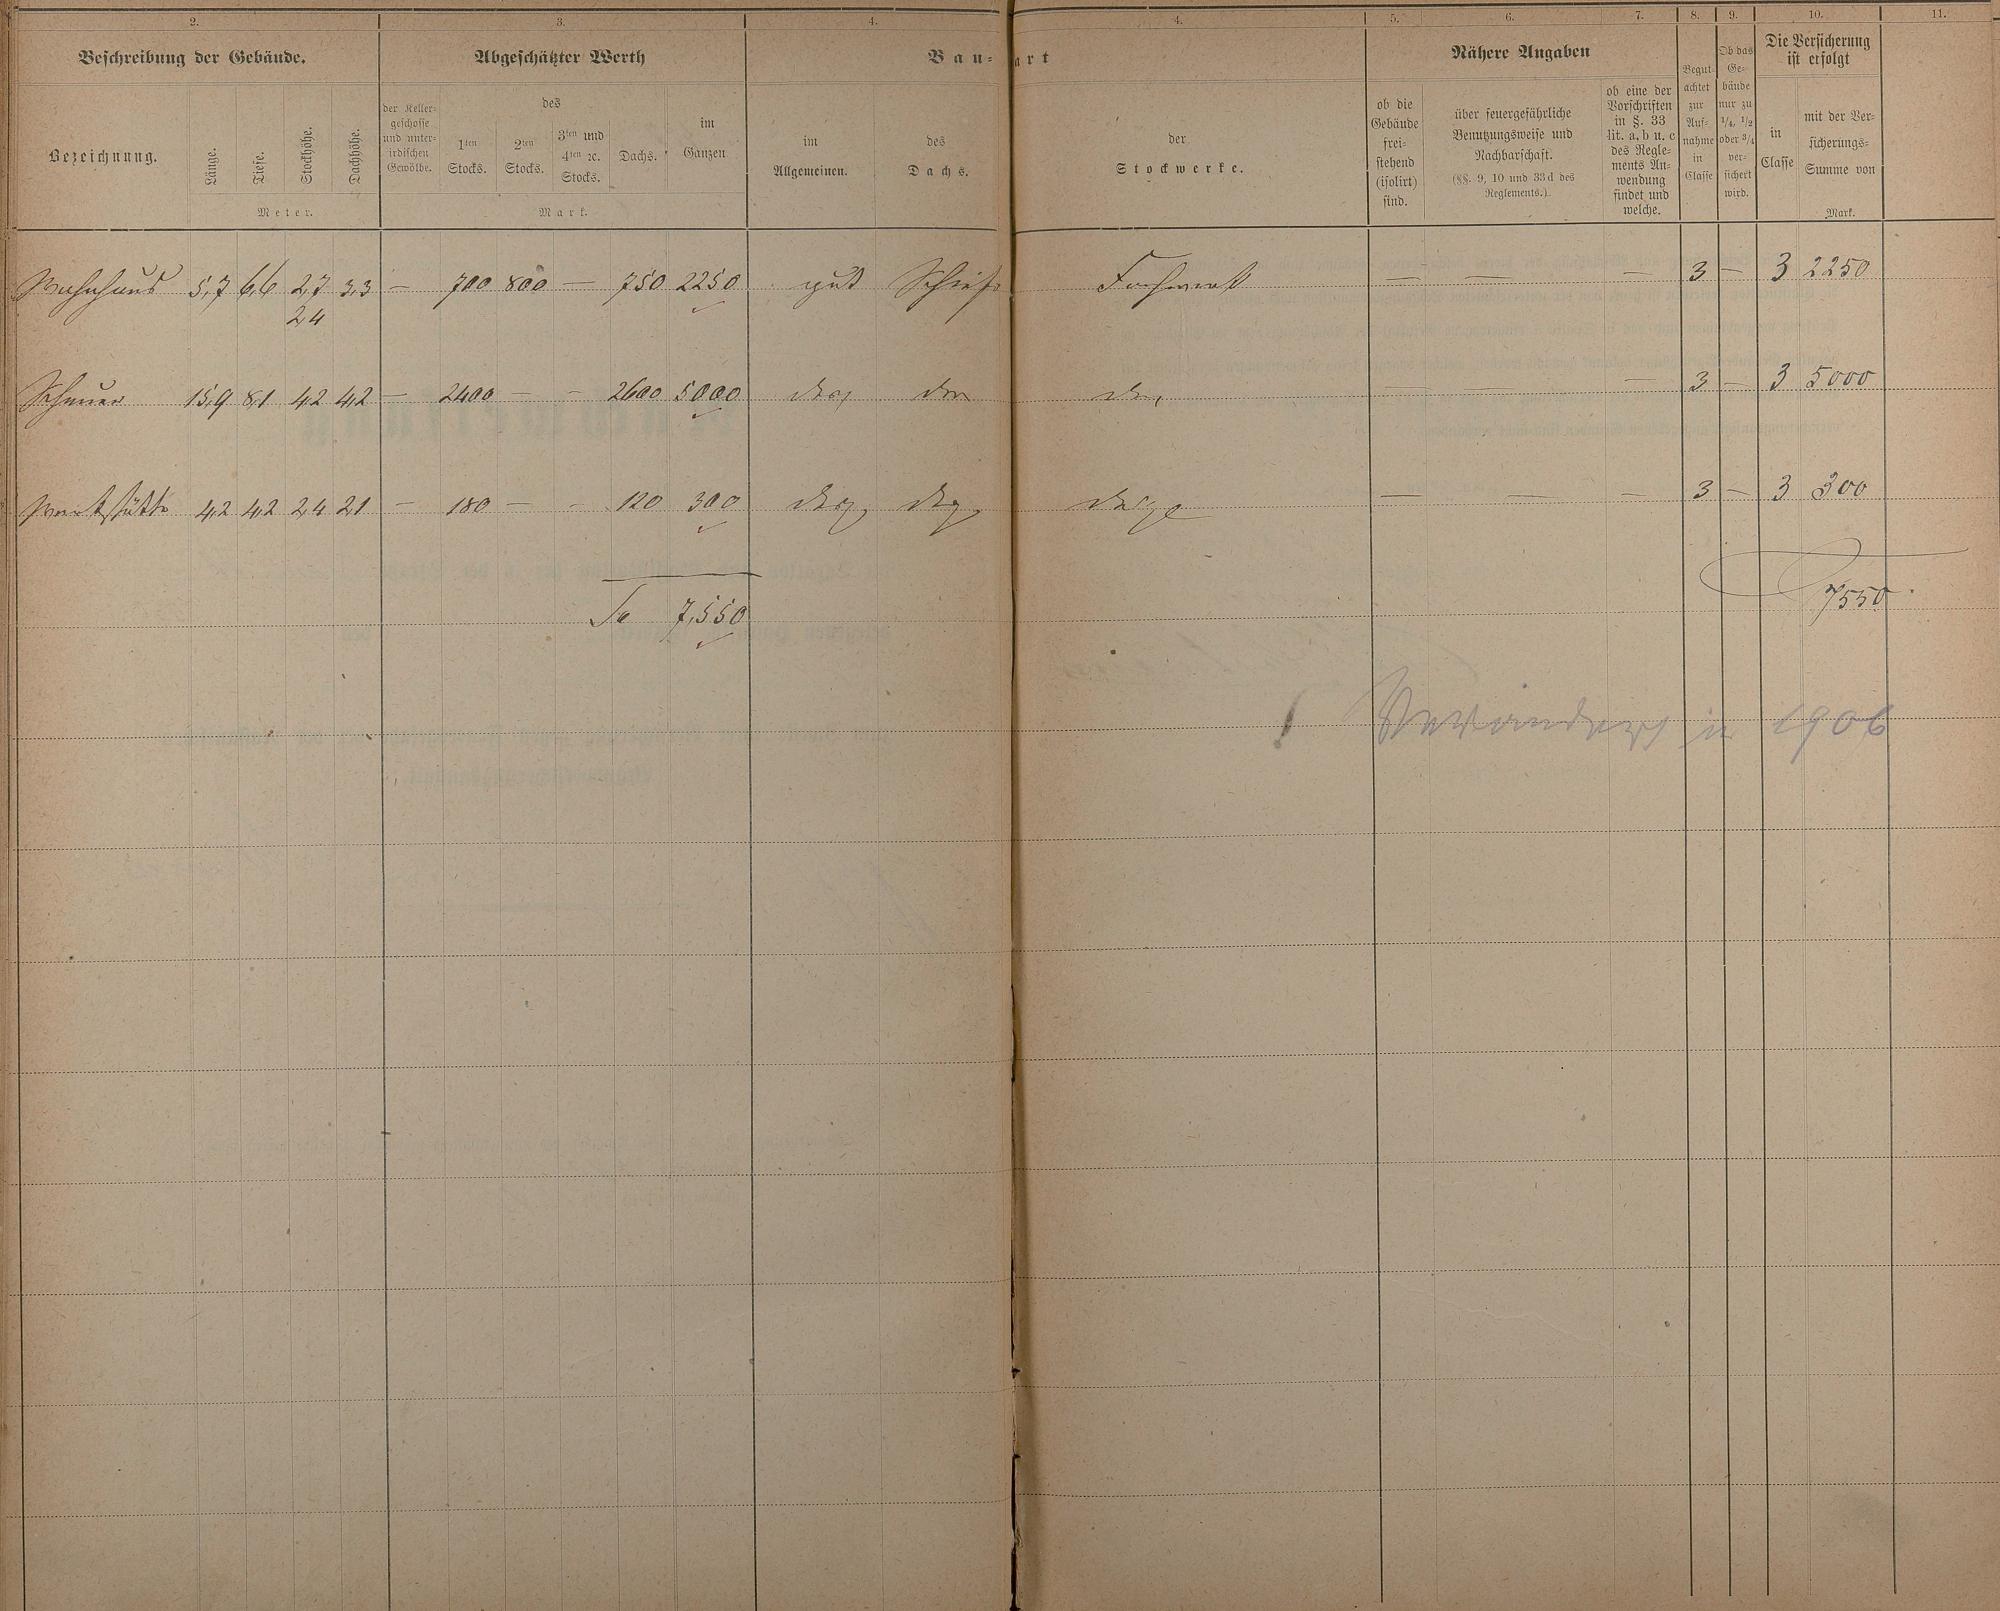 2. 3. 4. 4. 5. 6. 7. 8. 9. 10. 11.
Beschreibung der Gebäude. Abgeschätzter Werth Bau-art Nähere Angaben
Bezeichnung. Länge. Tiefe. Stockhöhe. Dachhöhe.
Meter.
der Keller-
geschosse
und unter-
irdischen
Gewölbe.
des
1ten
Stocks.
2ten
Stocks.
3ten und
4ten ꝛc.
Stocks.
Dachs.
im
Ganzen
Mark.
im
Allgemeinen.
des
Dachs.
der
Stockwerke.
ob die
Gebäude
frei-
stehend
(isolirt)
sind.
über feuergefährliche
Benutzungsweise und
Nachbarschaft.
(§§. 9, 10 und 33 d des
Reglements.)
ob eine der
Vorschriften
in §. 33
lit. a, b u. c
des Regle-
ments An-
wendung
findet und
welche.
Begut-
achtet
zur
Auf-
nahme
in
Classe
Ob das
Ge-
bäude
nur zu
1/4, 1/2
oder 3/4
ver-
sichert
wird.
Die Versicherung
ist erfolgt
in
Classe
mit der Ver-
sicherungs-
Summe von
Mark.
Wohnhaus 5,7 6,6 2,7 3,3 — 700 800 — 750 2250 gut Schiefer Fachwerk — — — 3 — 3 2250
24
Scheuer 15,9 8,1 4,2 4,2 — 2400 — — 2600 5000 — — — 3 — 3 5000
Werkstätte 4,2 4,2 2,4 2,1 — 180 — — 120 300 — — — 3 — 3 300
Sa 7,550 7550.
Verändert in 1906